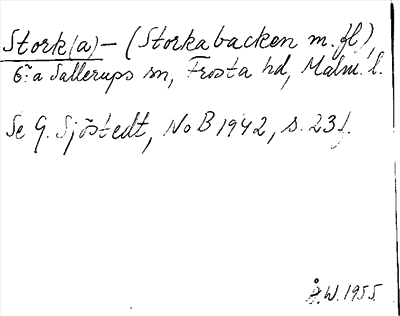 Stork(a)- (Storkabacken m.fl.),
Ö:a Sallerups sn, Frosta hd, Malm. l.
Se G. Sjöstedt, NoB 1942, s. 23 f.
Å.W. 1955.